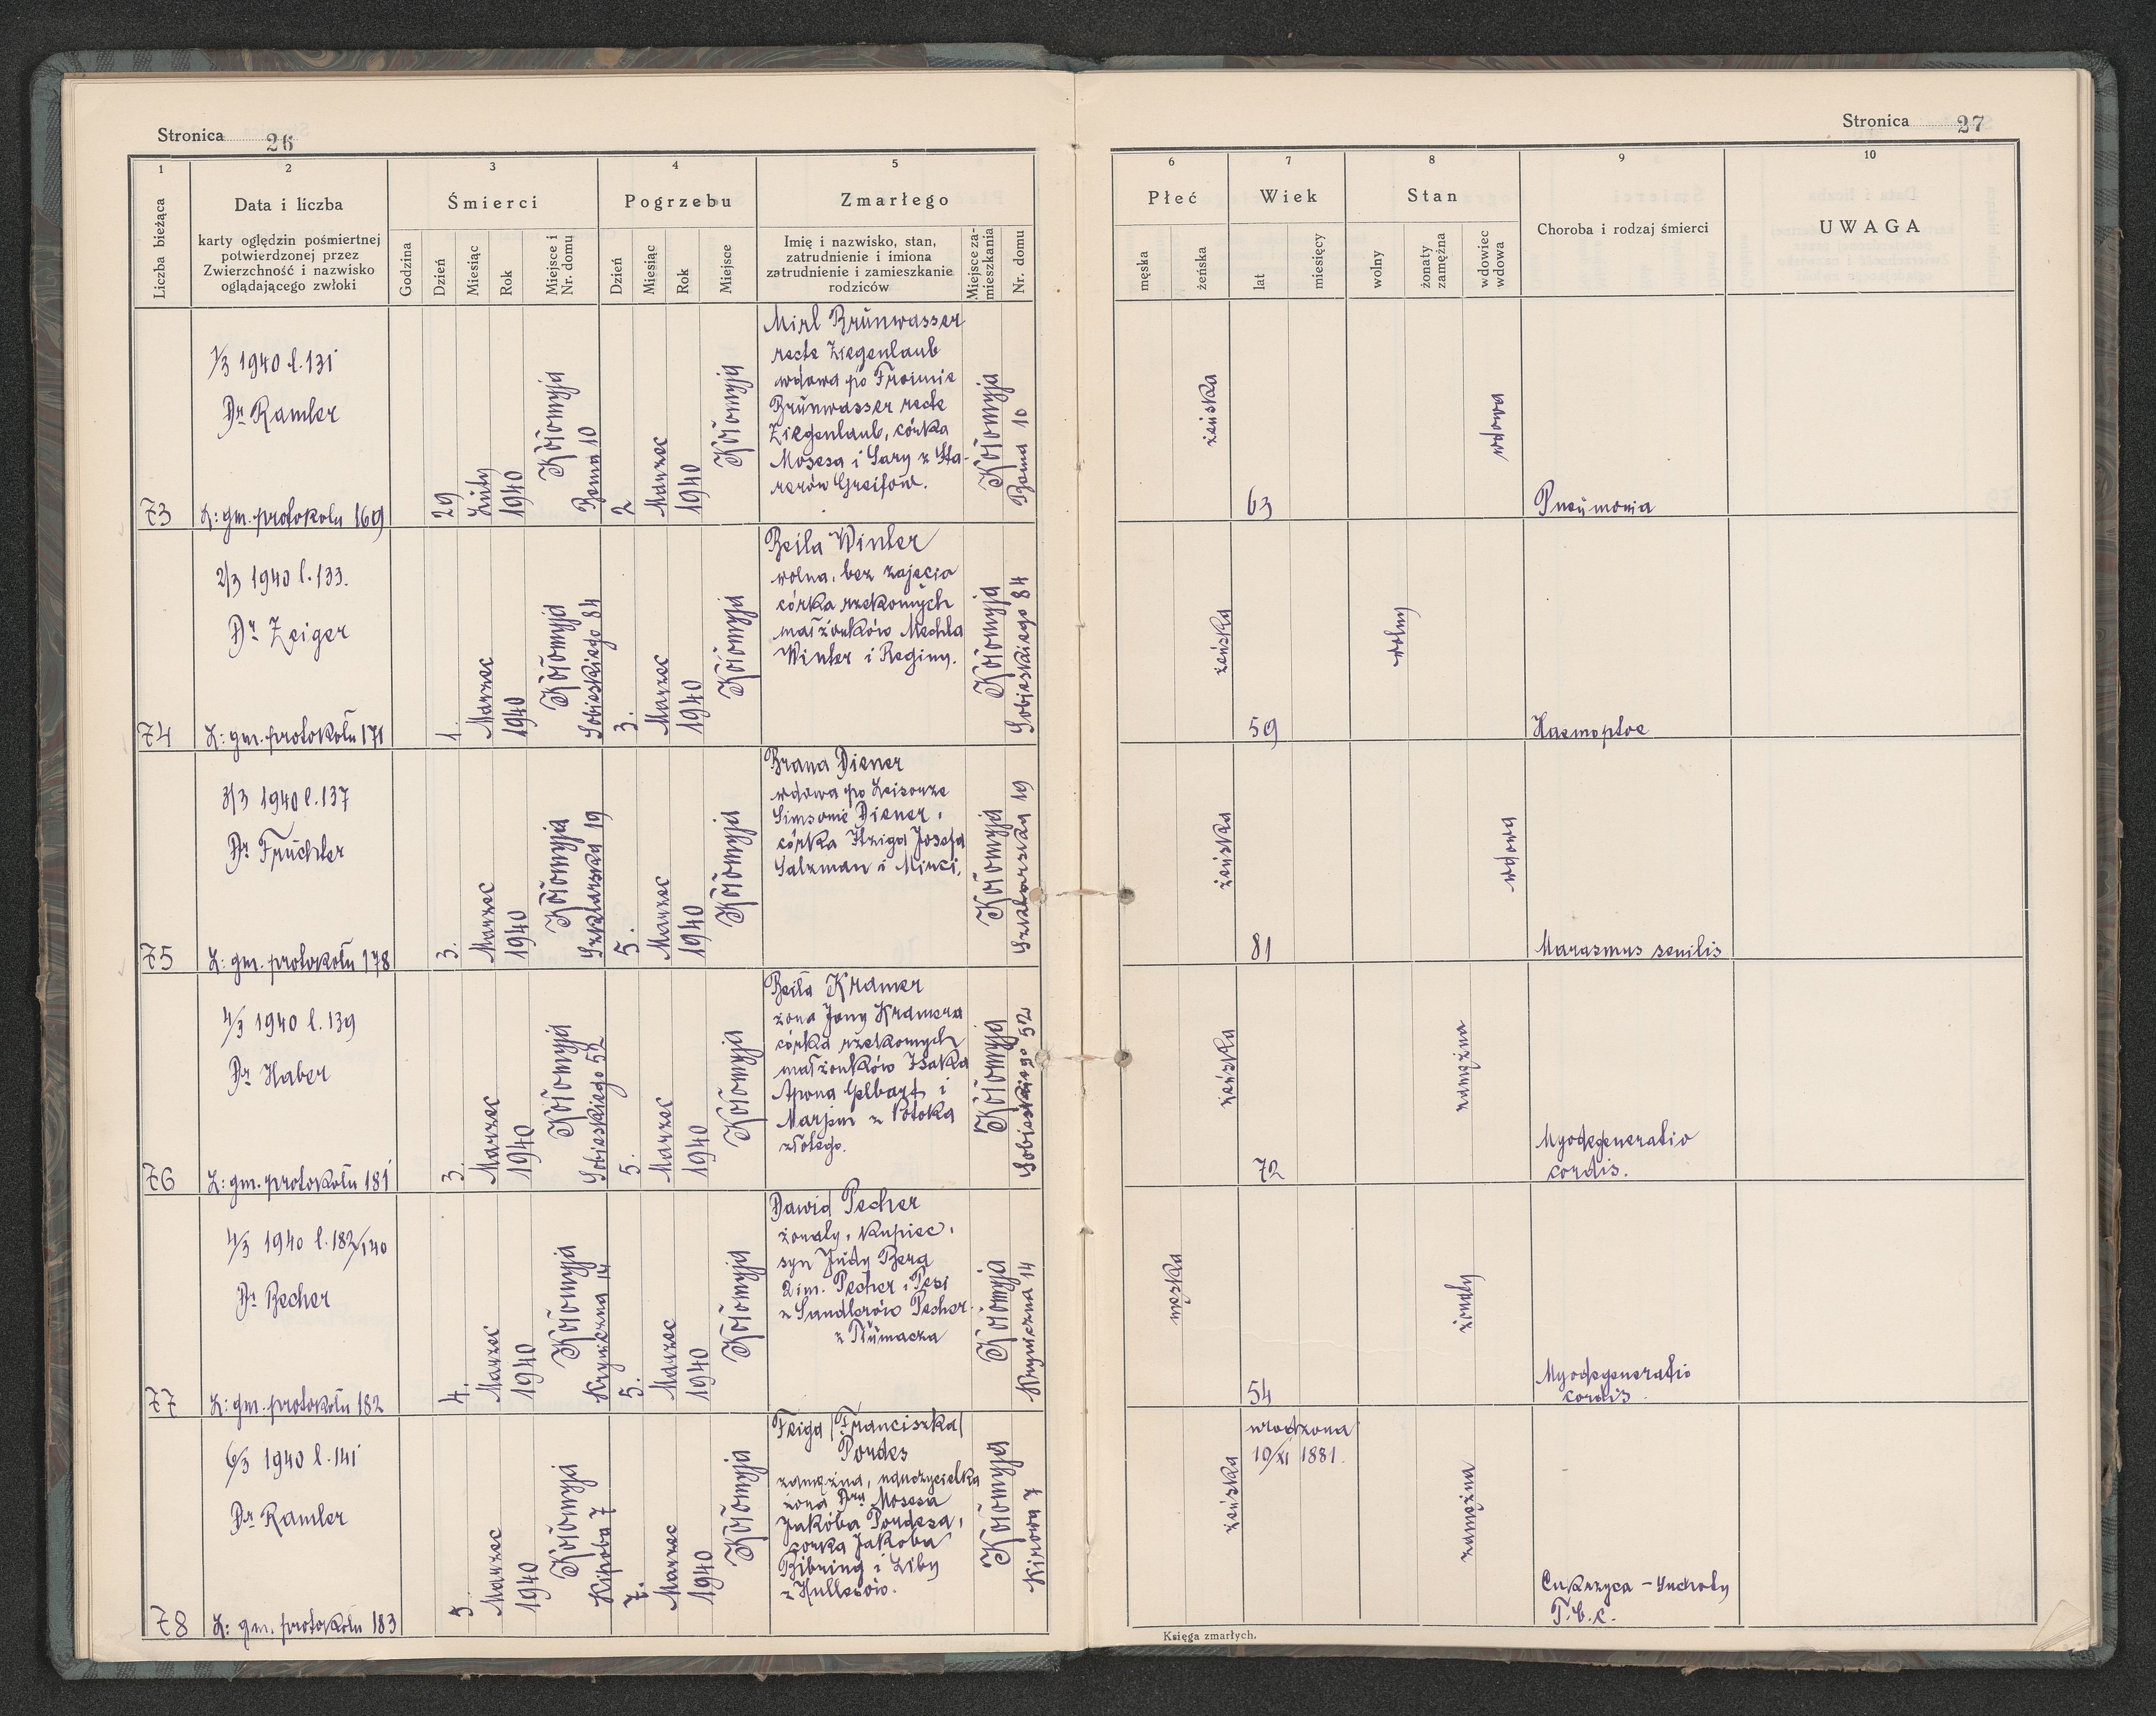 Stronica 26
1
2
3
4
5
Liczba bieżąca
Data i liczba
karty oględzin pośmiertnej
potwierdzonej przez
Zwierzchność i nazwisko
oglądającego zwłoki
Śmierci
Godzina
Dzień
Miesiąc
Rok
Miejsce i
Nr. domu
Pogrzebu
Dzień
Miesiąc
Rok
Miejsce
Zmarłego
Imię i nazwisko, stan,
zatrudnienie i imiona
zatrudnienie i zamieszkanie
rodziców
Miejsce za-
mieszkania
Nr. domu
73
1/3 1940 l. 131
Dr Ramler
L: gm. protokolu 169
29
Luty
1940
Kołomyja
Bema 10
2
Marzec
1940
Kołomyja
Mirl Brünwasser
recte Ziegenlaub
wdowa po Froimie
Brünwasser recte
Ziegenlaub, córka
Mosesa i Sary z Sta-
rerów Greifów.
Kołomyja
Bema 10
74
2/3 1940 l. 133.
Dr Zeiger
L: gm. protokołu 171
1.
Marzec
1940
Kołomyja
Sobieskiego 84
3.
Marzec
1940
Kołomyja
Beila Winter
wolna, bez zajęcia
córka rzekomych
małżonków Mechla
Winter i Reginy.
Kołomyja
Sobieskiego 84
75
3/3 1940 l. 137
Dr Früchter
L: gm. protokołu 178
3.
Marzec
1940
Kołomyja
Szklarska 19
5.
Marzec
1940
Kołomyja
Brana Diener
wdowa po Leisorze
Simsonie Diener,
córka Itziga Josefa
Salzman i Mirci.
Kołomyja
Szklarska 19
76
4/3 1940 l. 139
Dr Haber
L: gm. protokołu 181
3.
Marzec
1940
Kołomyja
Sobieskiego 52
5.
Marzec
1940
Kołomyja
Beila Kramer
żona Jony Kramera
córka rzekomych
małżonków Isaka
Arona Gelbart i
Marjem z Potoka
złotego.
Kołomyja
Sobieskiego 52
77
4/3 1940 l. 182/140
Dr Becher
L: gm. protokołu 182
4.
Marzec
1940
Kołomyja
Kryniczna 14
5.
Marzec
1940
Kołomyja
Dawid Pecher
żonaty, kupiec,
syn Judy Bera
2 im. Pecher i Pesi
z Sandlerów Pecher
z Tłumacza
Kołomyja
Kryniczna 14
78
6/3 1940 l. 141
Dr Ramler
L: gm. protokołu 183
5
Marzec
1940
Kołomyja
7
7.
Marzec
1940
Kołomyja
Feiga /Franciszka/
Pordes
zamężna, nauczycielka
żona Dra Mosesa
Jakóba Pordesa,
córka Jakoba
Bibring i Liby
z Hullesów.
Kołomyja
Kirowa 7
Stronica 27
6
7
8
9
10
Płeć
męska
żeńska
Wiek
lat
miesięcy
Stan
wolny
żonaty
zamężna
wdowiec
wdowa
Choroba i rodzaj śmierci
UWAGA
żeńska
63
wdowa
Pneumonia
żeńska
59
wolny
Haemoptoe
żeńska
81
wdowa
Marasmus senilis
żeńska
72
zamężna
Myodegeneratio
cordis.
męska
54
żonaty
Myodegeneratio
cordis
żeńska
urodzona
10/XI 1881.
zamężna
Cukrzyca - Suchoty
T.b.c.
Księga zmarłych.